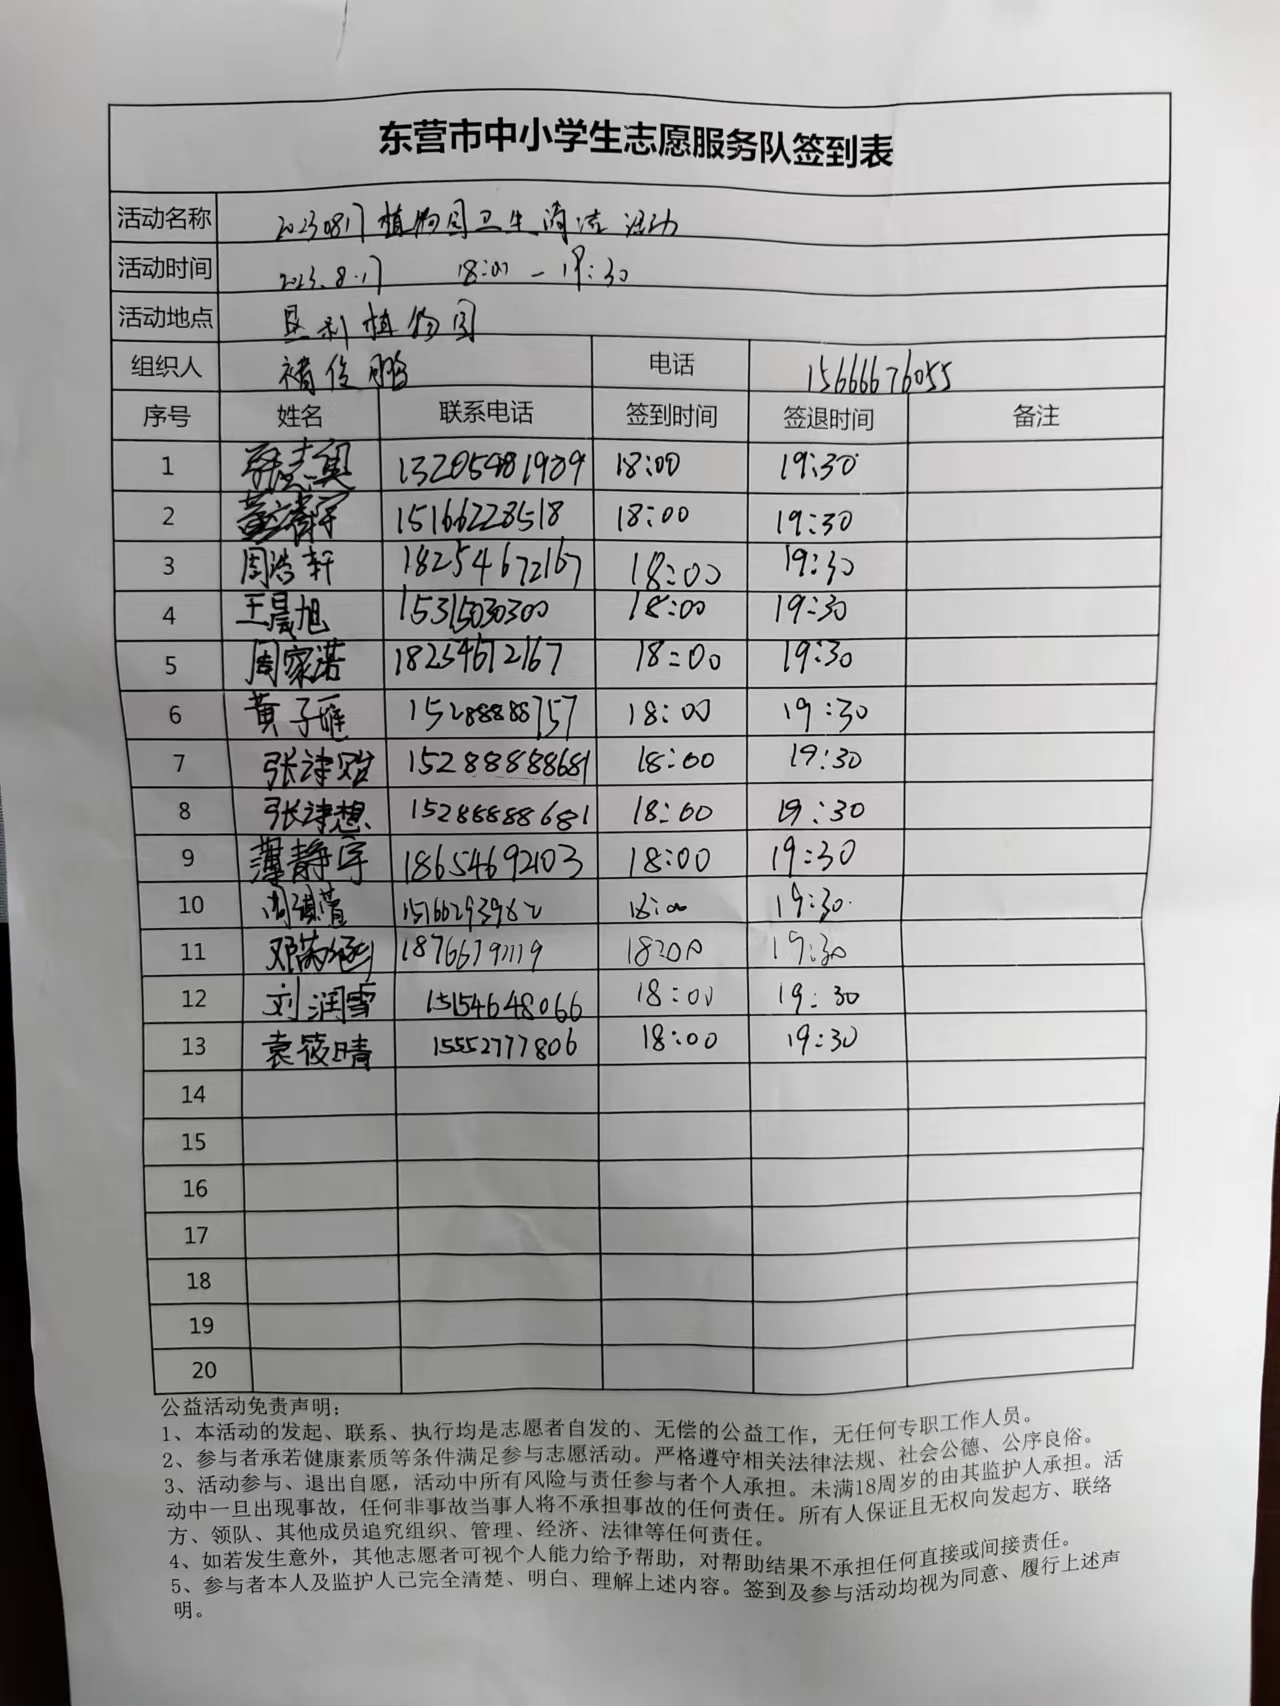 东营市中小学生志愿服务队签到表
活动名称 20230817植物园卫生清洁活动
活动时间 2023.8.17 18:00-19:30
活动地点 垦利植物园
组织人 褚俊鹏 电话 15666676055
序号 姓名 联系电话 签到时间 签退时间 备注
1 张志奥 13205481909 18:00 19:30
2 15166228518 18:00 19:30
3 周浩轩 18254672167 18:00 19:30
4 王晨旭 15315030300 18:00 19:30
5 周家诺 18254672167 18:00 19:30
6 黄子雁 15288888757 18:00 19:30
7 张诗贻 15288888681 18:00 19:30
8 张诗想 15288888681 18:00 19:30
9 薄静宇 18654692103 18:00 19:30
10 18:00 19:30
11 18:00 19:30
12 刘润雪 15154648066 18:00 19:30
13 袁筱晴 15552777806 18:00 19:30
14
15
16
17
18
19
20
公益活动免责声明：
1、本活动的发起、联系、执行均是志愿者自发的、无偿的公益工作，无任何专职工作人员。
2、参与者承若健康素质等条件满足参与志愿活动。严格遵守相关法律法规、社会公德、公序良俗。
3、活动参与、退出自愿，活动中所有风险与责任参与者个人承担。未满18周岁的由其监护人承担。活
动中一旦出现事故，任何非事故当事人将不承担事故的任何责任。所有人保证且无权向发起方、联络
方、领队、其他成员追究组织、管理、经济、法律等任何责任。
4、如若发生意外，其他志愿者可视个人能力给予帮助，对帮助结果不承担任何直接或间接责任。
5、参与者本人及监护人已完全清楚、明白、理解上述内容。签到及参与活动均视为同意、履行上述声
明。